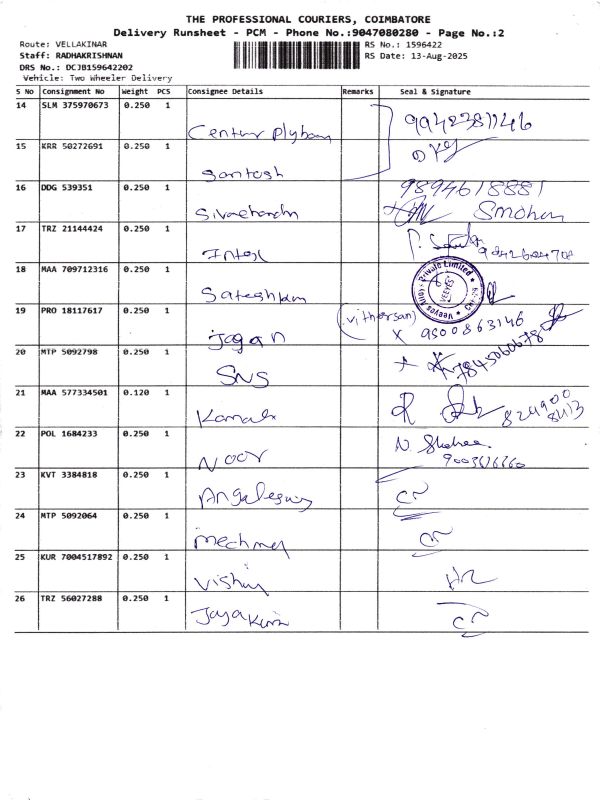 THE PROFESSIONAL COURIERS, COIMBATORE
Delivery Runsheet - PCM - Phone No.:9047080280 - Page No.:2
Route: VELLAKINAR
RS No.: 1596422
Staff: RADHAKRISHNAN
RS Date: 13-Aug-2025
DRS No.: DCJB159642202
Vehicle: Two Wheeler Delivery
S No Consignment No Weight PCS Consignee Details Remarks Seal & Signature
14 SLM 375970673 0.250 1
Century Plyboard 9942381146
15 KRR 50272691 0.250 1
Santosh
16 DDG 539351 0.250 1 9894618881
Sivachandra Smohan
17 TRZ 21144424 0.250 1
Intex
18 MAA 709712316 0.250 1 Private Limited
Sateshkum
19 PRO 18117617 0.250 1 (vitharsan)
jagan X 9500863146
20 MTP 5092798 0.250 1
SNS
21 MAA 577334501 0.120 1
Kamala
22 POL 1684233 0.250 1 N.
Noor
23 KVT 3384818 0.250 1
24 MTP 5092064 0.250 1
25 KUR 7004517892 0.250 1
Vishnu
26 TRZ 56027288 0.250 1